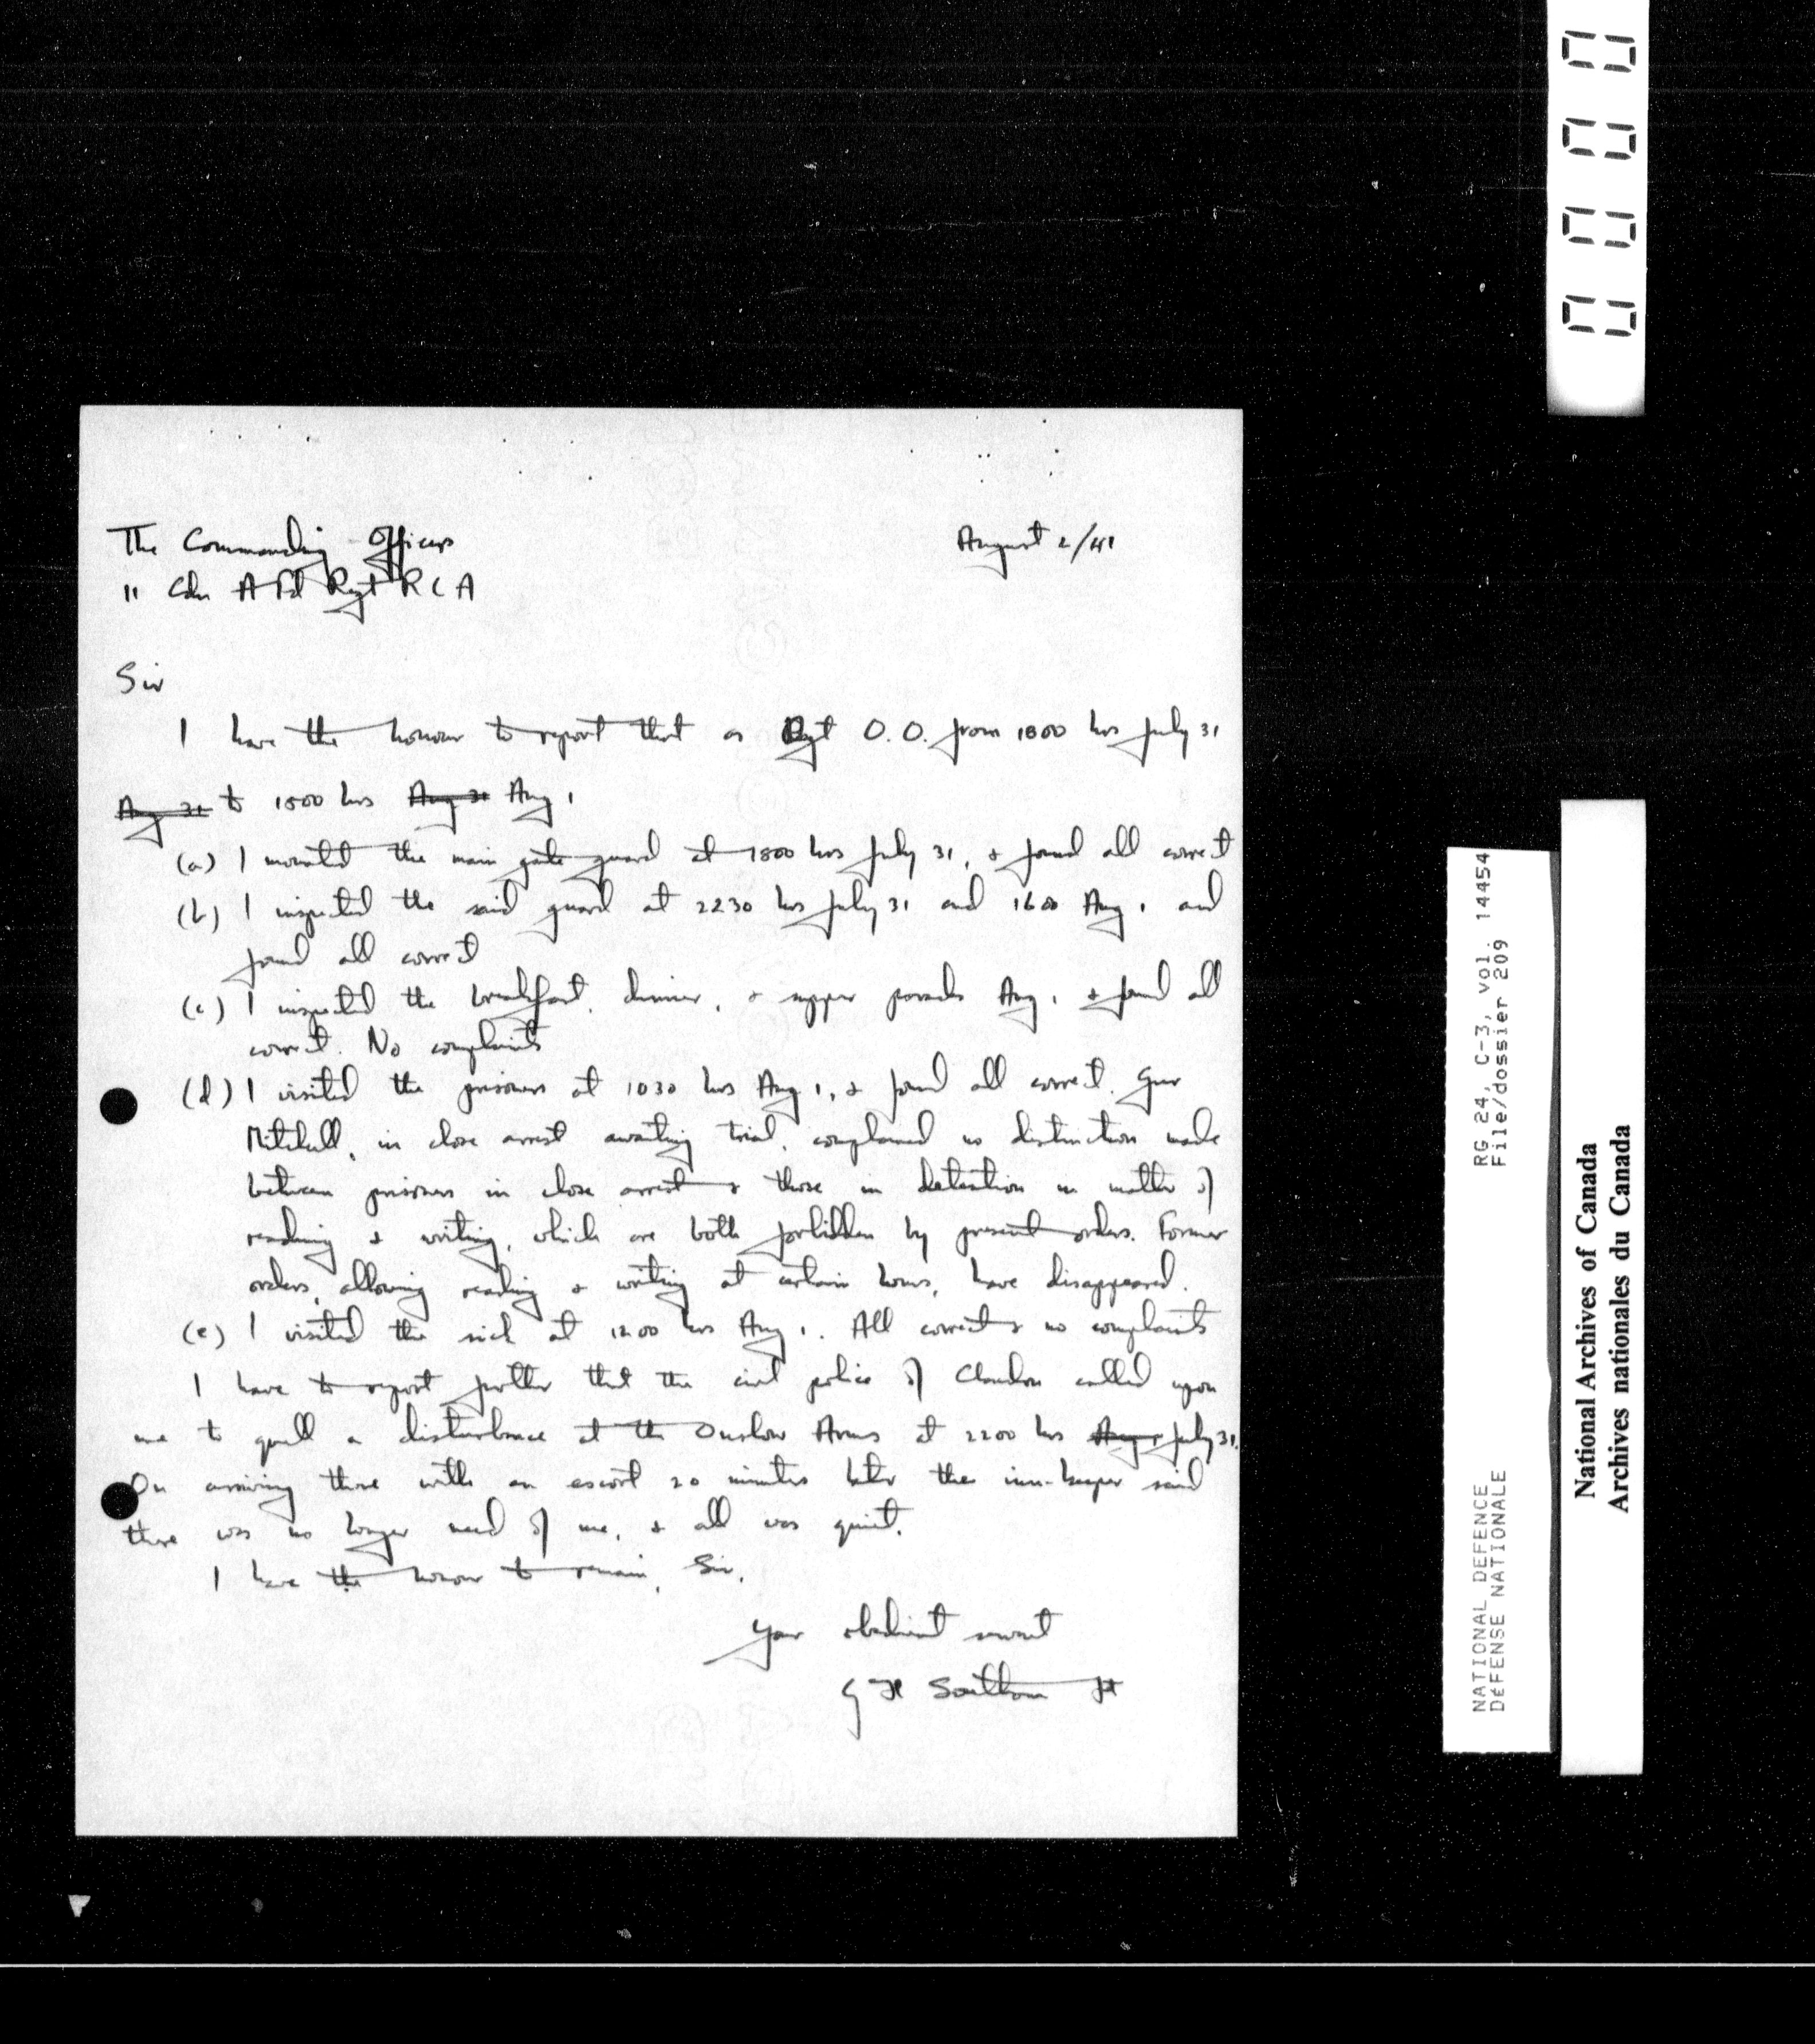 0000
The Commanding Officer
August 2/41
11 Cdn A Fd Rgt R C A
Sir
I have the honour to report that as Rgt O.O. from 1800 hrs July 31
Aug 31 to 1800 hrs Aug 31 Aug 1
(a) I mounted the main gate guard at 1800 hrs July 31, & found all correct
(b) I inspected the said guard at 2230 hrs July 31 and 1600 Aug 1 and
found all correct
(c) I inspected the breakfast, dinner, & supper parades Aug 1 & found all
correct. No complaints
(d) I visited the prisoners at 1030 hrs Aug 1, & found all correct. Gnr
Mitchell, in close arrest awaiting trial, complained no distinction made
between prisoners in close arrest & those in detention in matter of
reading & writing, which are both forbidden by present orders. Former
orders, allowing reading & writing at certain hours, have disappeared.
(e) I visited the sick at 1200 hrs Aug 1. All correct & no complaints
I have to report further that the civil police of Clandon called upon
me to quell a disturbance at the Onslow Arms at 2200 hrs Aug 1 July 31.
On arriving there with an escort 20 minutes later the inn-keeper said
there was no longer need of me, & all was quiet.
I have the honour to remain, Sir,
Your obedient servant
G H Southam Lt
RG 24, C-3, vol. 14454
File/dossier 209
NATIONAL DEFENCE
DéFENSE NATIONALE
National Archives of Canada
Archives nationales du Canada